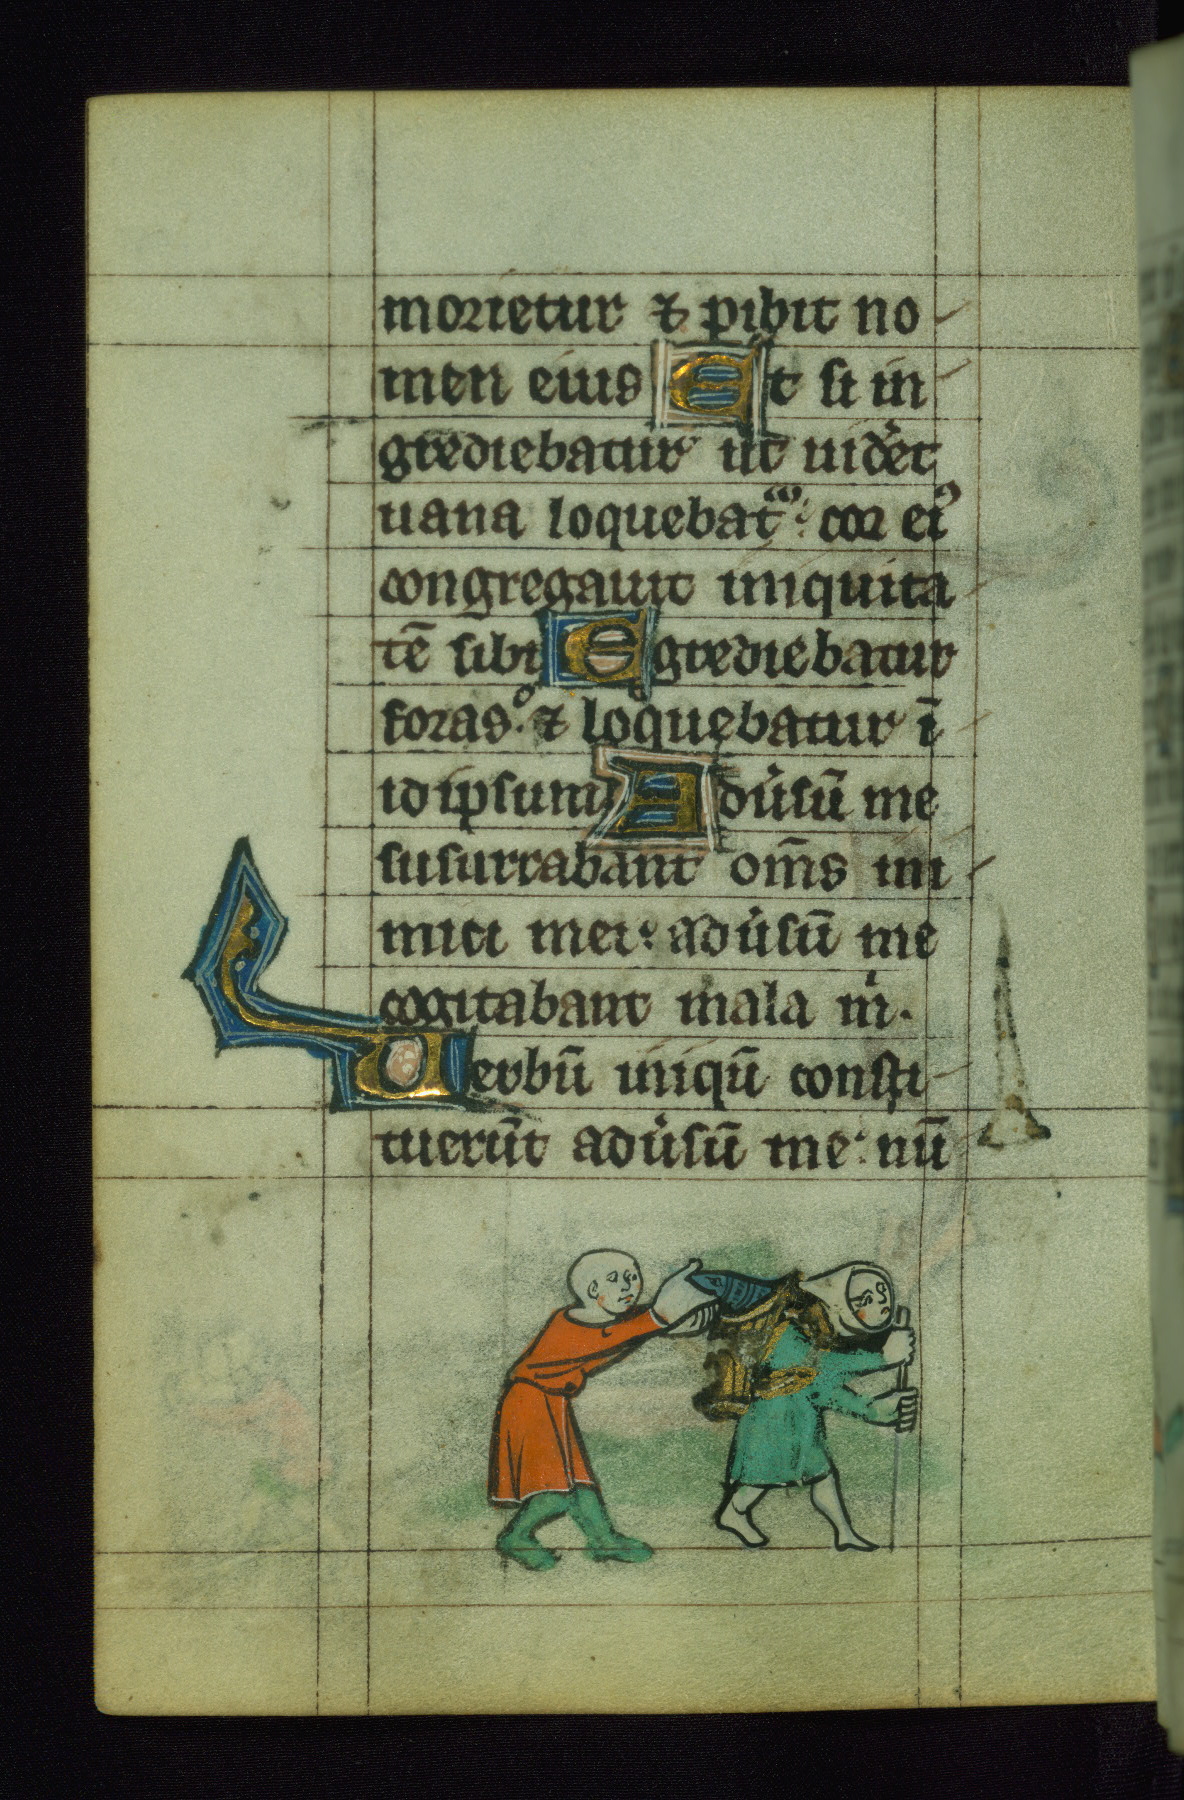 morietur ⁊ p̲ibit no
men eius Et si in
grediebatur ut uid̕et
uana loquebat᷑: cor ei᷒
congregauit iniquita
tē sibi Egrediebatur
foras: ⁊ loquebatur ī
idipsum Adu̕sū me
susurrabant om̄s ini
mici mei: adu̕sū me
cogitabant mala m̍.
Uerbū iniqū consti
tuerūt adu̕sū me: nū